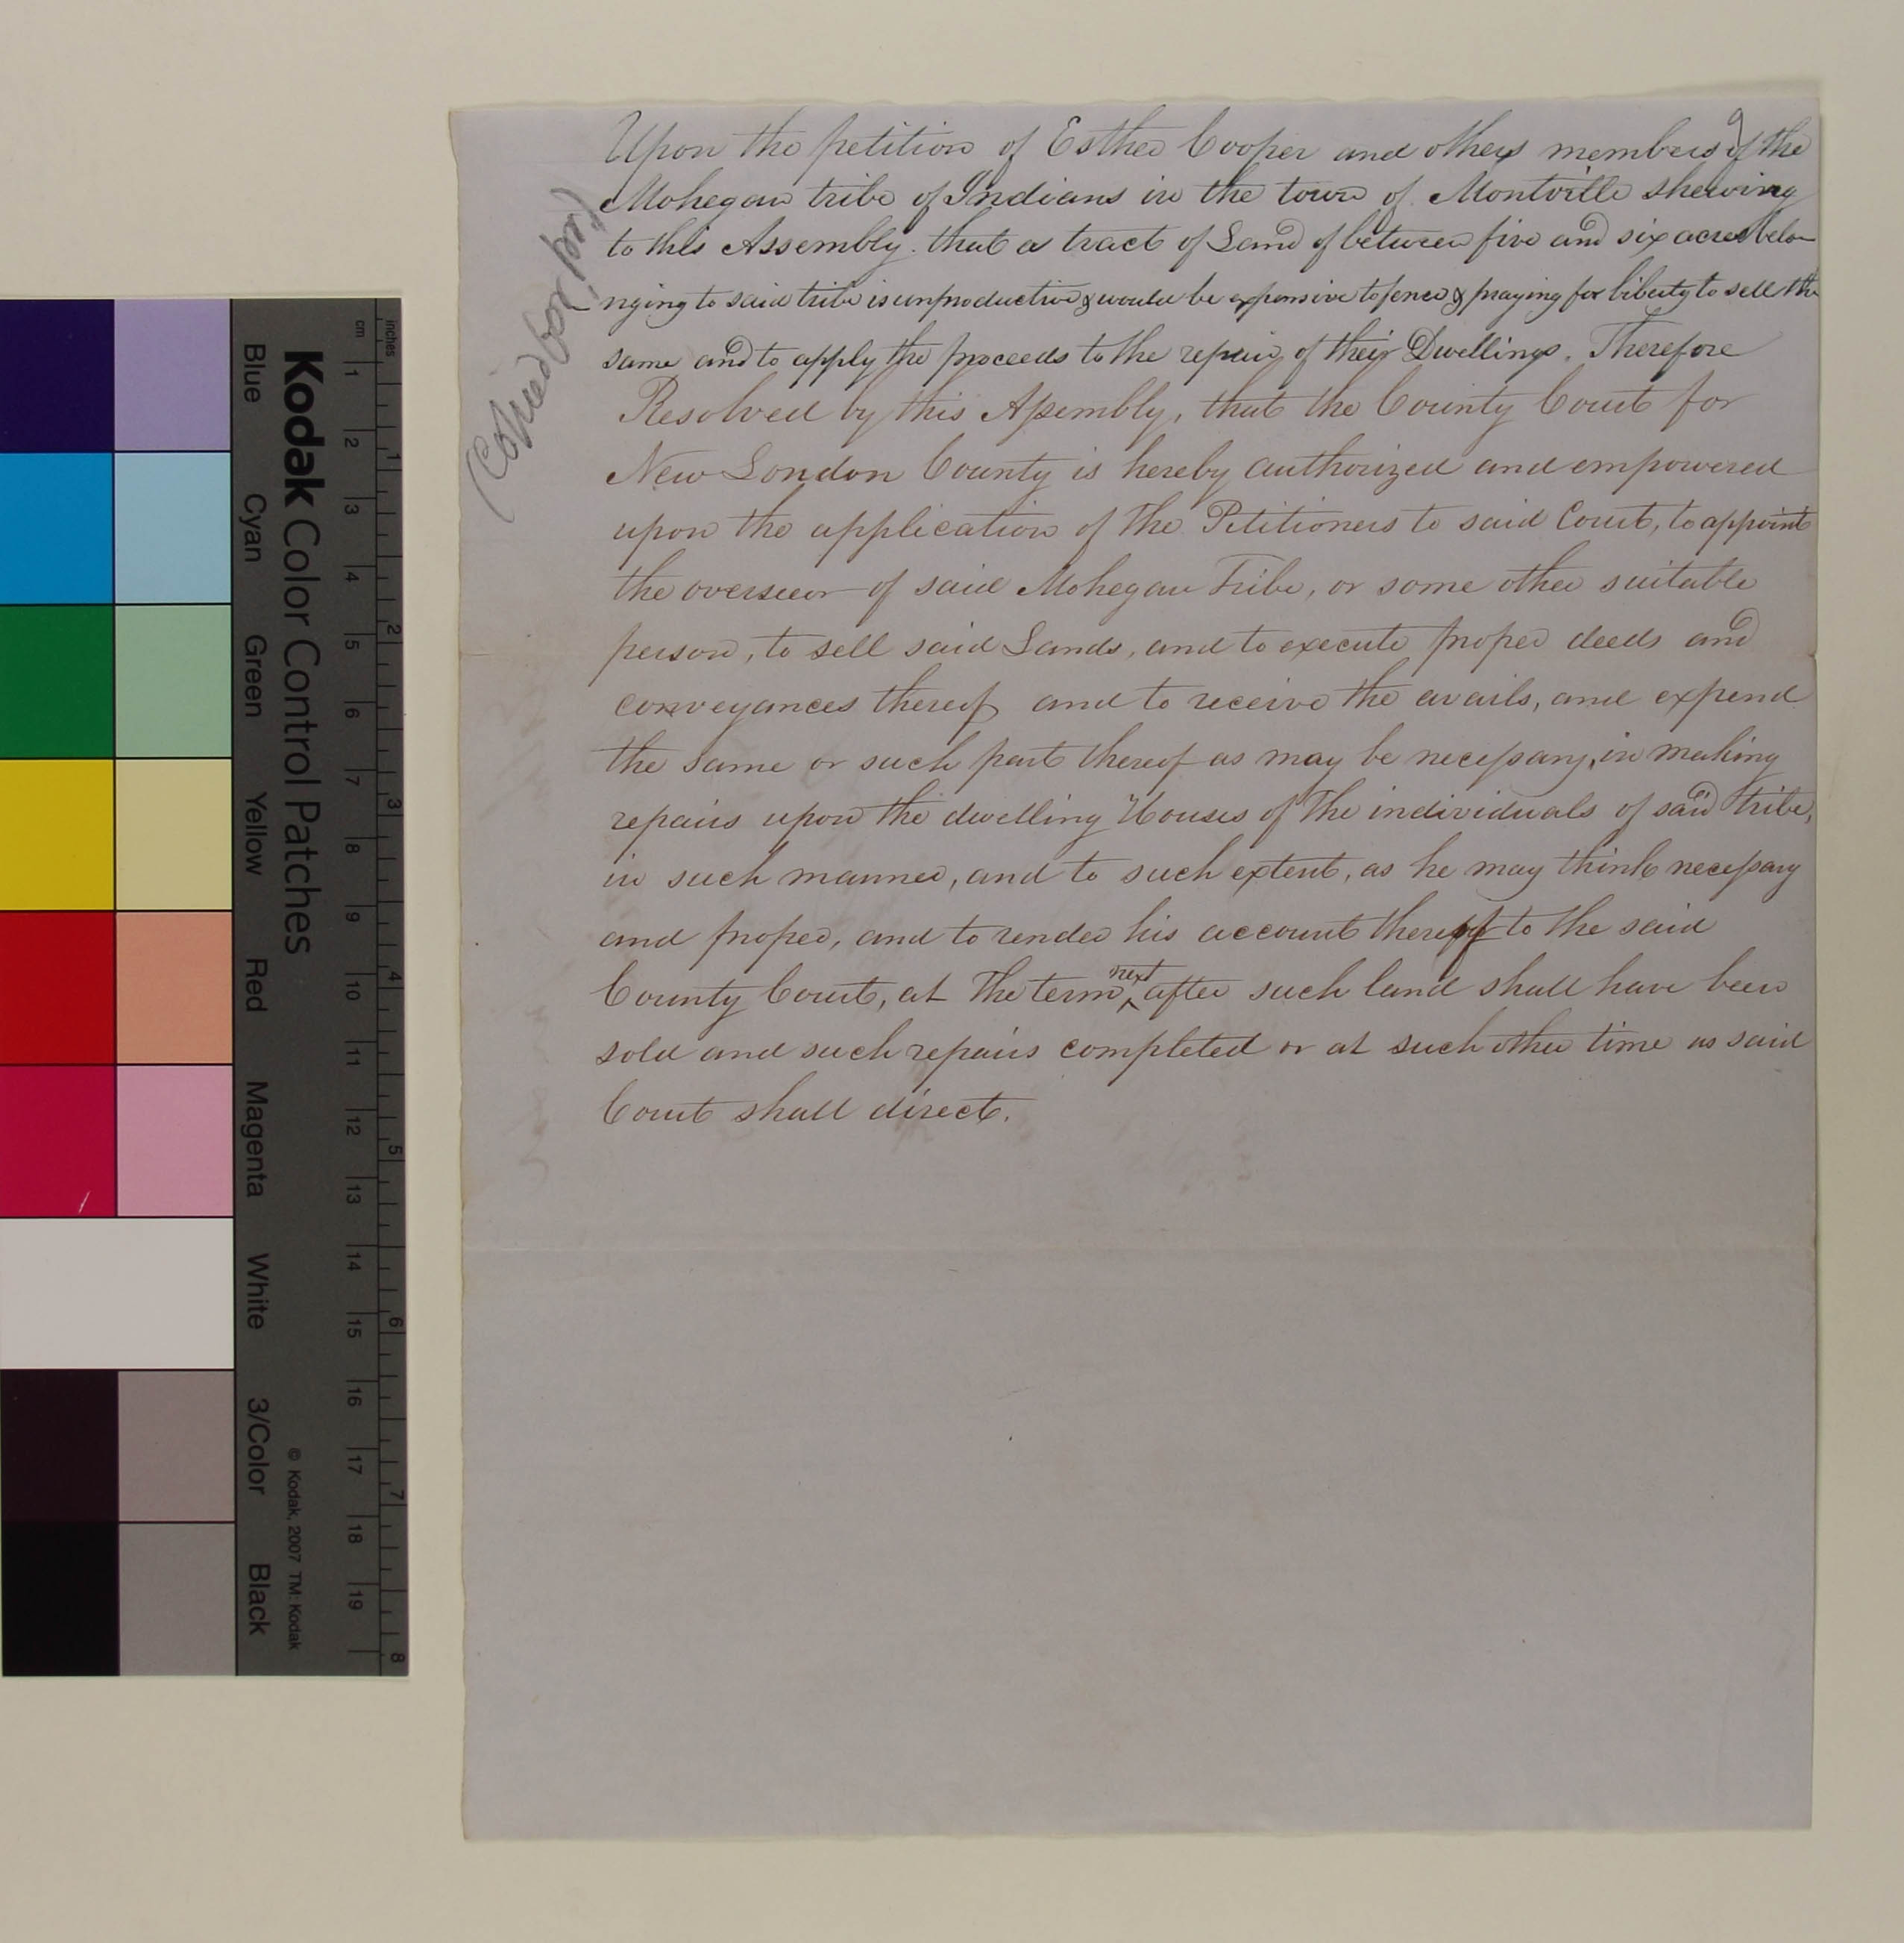 Upon the petition of Esther Cooper and others members of the
Mohegan tribe of Indians in the town of Montville shewing
to this Assembly. that a tract of Land of between five and six acres belo-
nging to said tribe is unproductive & would be expensive to fence & praying for liberty to sell the
same and to apply the proceeds to the repair of their Dwellings. Therefore
Resolved by this Assembly, that the County Court for
New London County is hereby authorized and empowered
upon the application of the Petitioners to said Court, to appoint
the overseer of said Mohegan Tribe, or some other suitable
person, to sell said Lands, and to execute proper deeds and
conveyances thereof and to receive the avails, and expend
the same or such part thereof as may be necessary, in making
repairs upon the dwelling Houses of the individuals of said tribe,
in such manner, and to such extent, as he may think necessary
and proper, and to render his account thereof to the said
County Court, at the term next after such land shall have been
sold and such repairs completed or at such other time as said
Court shall direct.
(Copied
Kodak Color Control Patches
Blue Cyan Green Yellow Red Magenta White 3/Color Black
© Kodak, 2007 TM: Kodak
cm 1 2 3 4 5 6 7 8 9 10 11 12 13 14 15 16 17 18 19
inches 1 2 3 4 5 6 7 8